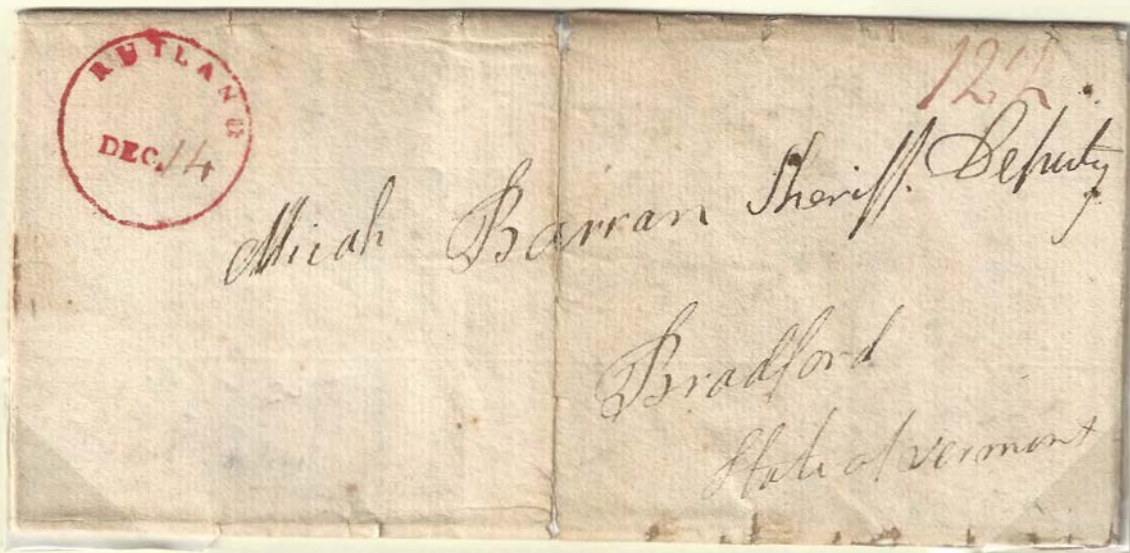 RUTLAND
DEC. 14
12 1/2
Micah Barran Sheriff. Deputy
Bradford
State of vermont